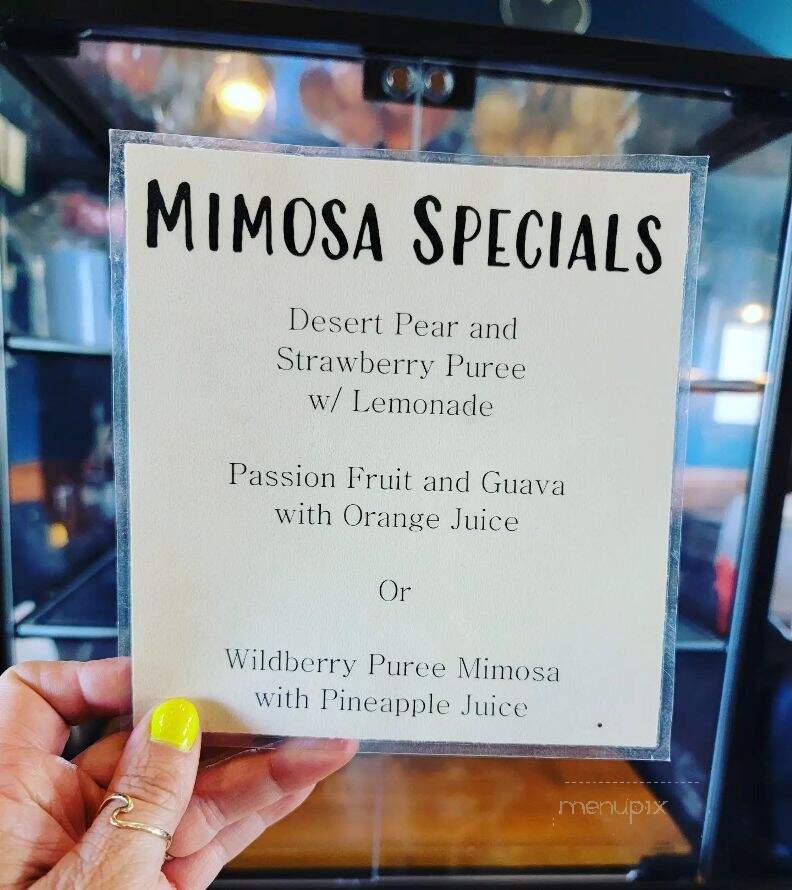 MIMOSA SPECIALS
Desert Pear and
Strawberry Puree
w/ Lemonade
Passion Fruit and Guava
with Orange Juice
Or
Wildberry Puree Mimosa
with Pineapple Juice
menupix